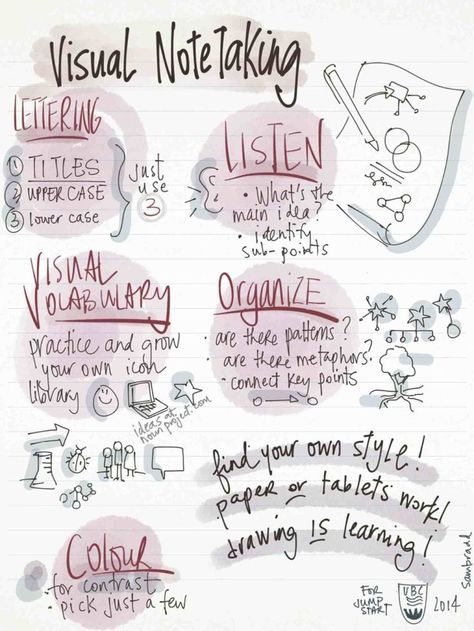 Visual NoteTaking
LETTERING
1 TITLES
2 UPPER CASE
3 lower case
just
use
3
LISTEN
• What's the
main idea?
• identify
sub-points
VISUAL
VOCABULARY
practice and grow
your own icon
library
ideas at
nounproject.com
ORGANIZE
• are there patterns?
• are there metaphors?
• connect key points
find your own style!
paper or tablets work!
drawing IS learning!
COLOUR
• for contrast
• pick just a few
FOR
JUMP
START
UBC
2014
sambradd